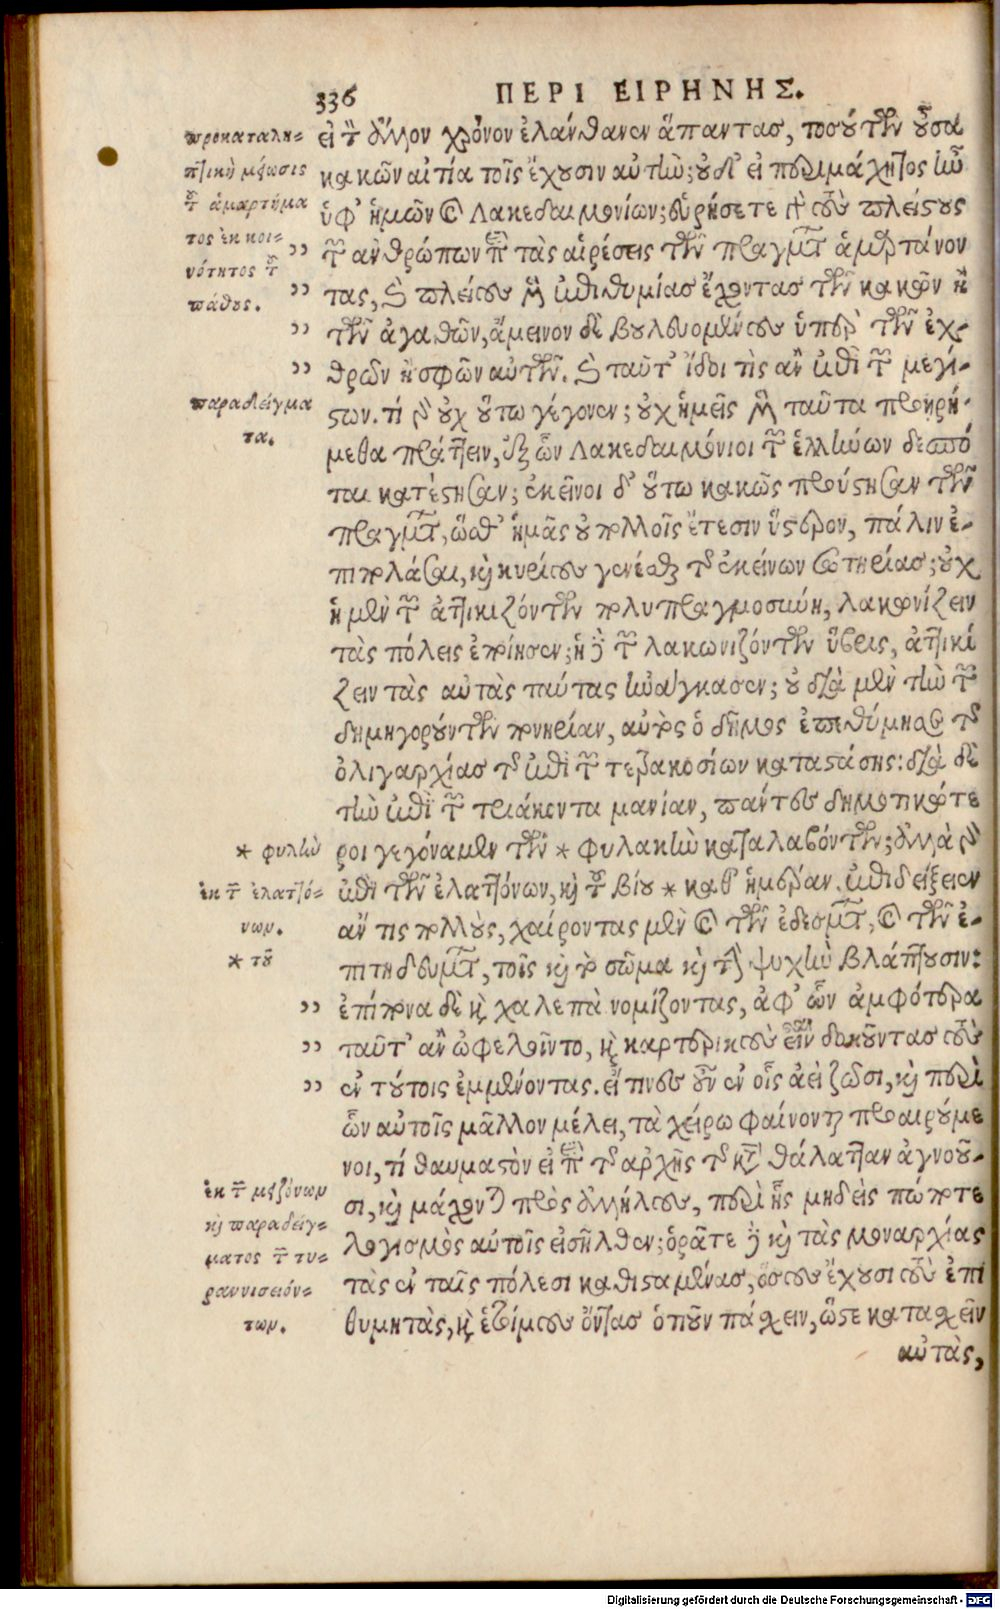 336 ΠΕΡΙ ΕΙΡΗΝΗΣ.
εἰ τὸν ἄλλον χρόνον ἐλάνθανεν ἅπαντας, τοσούτων οὖσα
κακῶν αἰτία τοῖς ἔχουσιν αὐτὴν; οὐδ' εἰ περιμάχητος ἦν
ὑφ' ἡμῶν καὶ Λακεδαιμονίων; εὑρήσετε γὰρ τοὺς πλείστους
τῶν ἀνθρώπων περὶ τὰς αἱρέσεις τῶν πραγμάτων ἁμαρτάνον
τας, καὶ πλείους μὲν ἐπιθυμίας ἔχοντας τῶν κακῶν ἢ
τῶν ἀγαθῶν, ἄμεινον δὲ βουλευομένους ὑπὲρ τῶν ἐχ-
θρῶν ἢ σφῶν αὐτῶν. καὶ ταῦτ' ἴδοι τὶς ἂν ἐπὶ τῶν μεγί-
στων. τί γὰρ οὐχ οὕτω γέγονεν; οὐχ ἡμεῖς μὲν ταῦτα προῃρή-
μεθα πράττειν, ἐξ ὧν Λακεδαιμόνιοι τῶν ἑλλήνων δεσπό
ται κατέστησαν; ἐκεῖνοι δ' οὕτω κακῶς προύστησαν τῶν
πραγμάτων, ὥσθ' ἡμᾶς οὐ πολλοῖς ἔτεσιν ὕστερον, πάλιν ἐ-
πιπολάσαι, καὶ κυρίους γενέσθαι τῆς ἐκείνων σωτηρίας; οὐχ
ἡ μὲν τῶν ἀττικιζόντων πολυπραγμοσύνη, λακωνίζειν
τὰς πόλεις ἐποίησεν; ἡ δὲ τῶν λακωνιζόντων ὕβρις, ἀττικί
ζειν τὰς αὐτὰς ταύτας ἠνάγκασεν; οὐ διὰ μὲν τὴν τῶν
δημηγορούντων πονηρίαν, αὐτὸς ὁ δῆμος ἐπεθύμησε τῆς
ὀλιγαρχίας τῆς ἐπὶ τῶν τετρακοσίων καταστάσης: διὰ δὲ
τὴν ἐπὶ τῶν τριάκοντα μανίαν, πάντες δημοτικώτε
ροι γεγόναμεν τῶν * φυλακὴν καταλαβόντων; ἀλλὰ γὰρ
ἐπὶ τῶν ἐλαττόνων, καὶ τοῦ βίου * καθ' ἡμέραν. ἐπιδείξειεν
ἄν τις πολλοὺς, χαίροντας μὲν καὶ τῶν ἐδεσμάτων, καὶ τῶν ἐ-
πιτηδευμάτων, τοῖς καὶ τὸ σῶμα καὶ τὴν ψυχὴν βλάπτουσιν:
ἐπίπονα δὲ καὶ χαλεπὰ νομίζοντας, ἀφ' ὧν ἀμφότερα
ταῦτ' ἂν ὠφελοῖντο, καὶ καρτερικοὺς εἶναι δοκοῦντας τοὺς
ἐν τούτοις ἐμμένοντας. εἴ τινες οὖν ἐν οἷς ἀεὶ ζῶσι, καὶ περὶ
ὧν αὐτοῖς μᾶλλον μέλει, τὰ χείρω φαίνονται προαιρούμε
νοι, τί θαυμαστὸν εἰ περὶ τῆς ἀρχῆς τῆς κατὰ θάλατταν ἀγνοοῦ-
σι, καὶ μάχονται πρὸς ἀλλήλους, περὶ ἧς μηδεὶς πώποτε
λογισμὸς αὐτοῖς εἰσῆλθεν; ὁρᾶτε δὲ καὶ τὰς μοναρχίας
τὰς ἐν ταῖς πόλεσι καθισταμένας, ὅσους ἔχουσι τοὺς ἐπι
θυμητὰς, καὶ ἑτοίμους ὄντας ὁτιοῦν πάσχειν, ὥστε κατασχεῖν
αὐτὰς,
προκαταλη-
πτικὴ μείωσις
τοῦ ἁμαρτήμα
τος ἐκ κοι-
νότητος τοῦ
πάθους.
παραδείγμα
τα.
* φυλὴν
ἐκ τῶν ἐλαττό-
νων.
* τοῦ
ἐκ τῶν μειζόνων
καὶ παραδείγ-
ματος τῶν τυ-
ραννισειόν-
των.
Digitalisierung gefördert durch die Deutsche Forschungsgemeinschaft - DFG